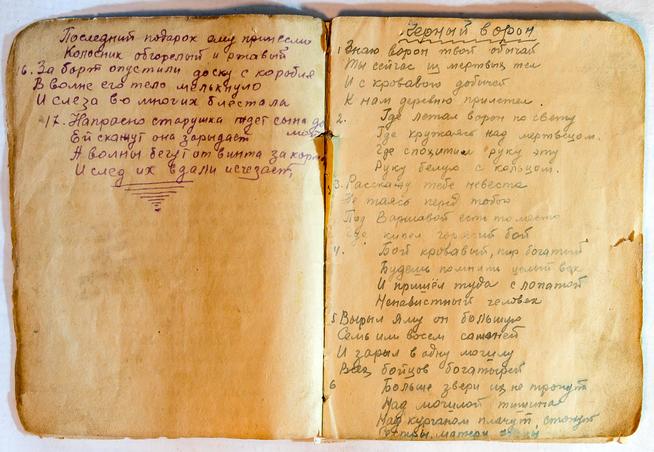 Последний подарок ему принесли
Колосник обгорелый и ржавый
16. За борт опустили доску с корабля
В волне его тело мелькнуло
И слеза во многих блестала
17. Напрасно старушка ждет сына до
мой
Ей скажут она заридает
А волны бегут от винта за корм
И след их вдали исчезает,
Черный ворон
1. Знаю ворон твой обычай
Ты сейчас из мертвых тел
И с кровавою добычей
К нам деревню прилетел.
2. Где летал ворон по свету
Где кружался над мертвецом.
Где спохитил руку эту
Руку белую с кольцом.
3. Расскажу тебе невеста
Не таясь перед тобою
Под Варшавой есть то место
Где кипел горячий бой
4. Бой кровавый, пир богатый
Будешь помнить целый век
И пришёл туда с лопатой
Ненавистный человек
5 Вырыл яму он большую
Семь или восем саженей
И зарыл в одну могилу
Всех бойцов богатырей
6 Больше звери их не тронут
Над могилой тишина
Над курганом плачут, стонут
матери